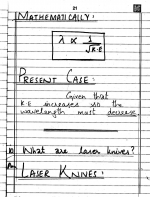 21
MATHEMATICALLY:
λ ∝ 1/√K.E
PRESENT CASE:
Given that
K.E increases so the
wavelength must decrease.
What are laser knives?
LASER KNIVES: